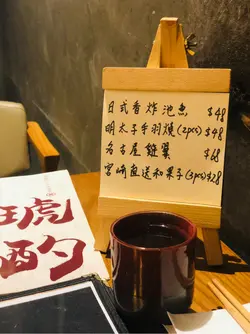 日式香炸池魚 $48
明太子手羽燒(2pcs) $48
名古屋雞翼 $68
宮崎直送和菓子(3pcs) $28
琥
酌